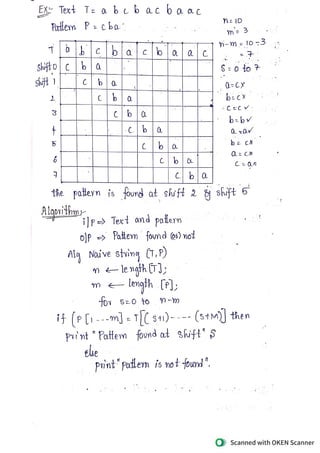 Ex:- Text T= a b c b a c b a a c
n=10
Pattern P = c b a
m = 3
n-m = 10-3
= 7
T a b c b a c b a a c
S = 0 to 7
shift 0 c b a
a=c x
shift 1 c b a
b=c x
2 c b a
c=c ✓
3 c b a
b=b ✓
4 c b a
a=a ✓
5 c b a
b=c x
6 c b a
a=c x
7 c b a
the pattern is found at shift 2 & shift 5
Algorithm:-
i/p => Text and pattern
o/p => Pattern found (or) not
Alg Naive string (T,P)
n ← length [T];
m ← length [P];
for s=0 to n-m
if [P[1---m] = T[(s+1)---- (s+m)] then
print "Pattern found at shift" S
else
print "pattern is not found".
Scanned with OKEN Scanner